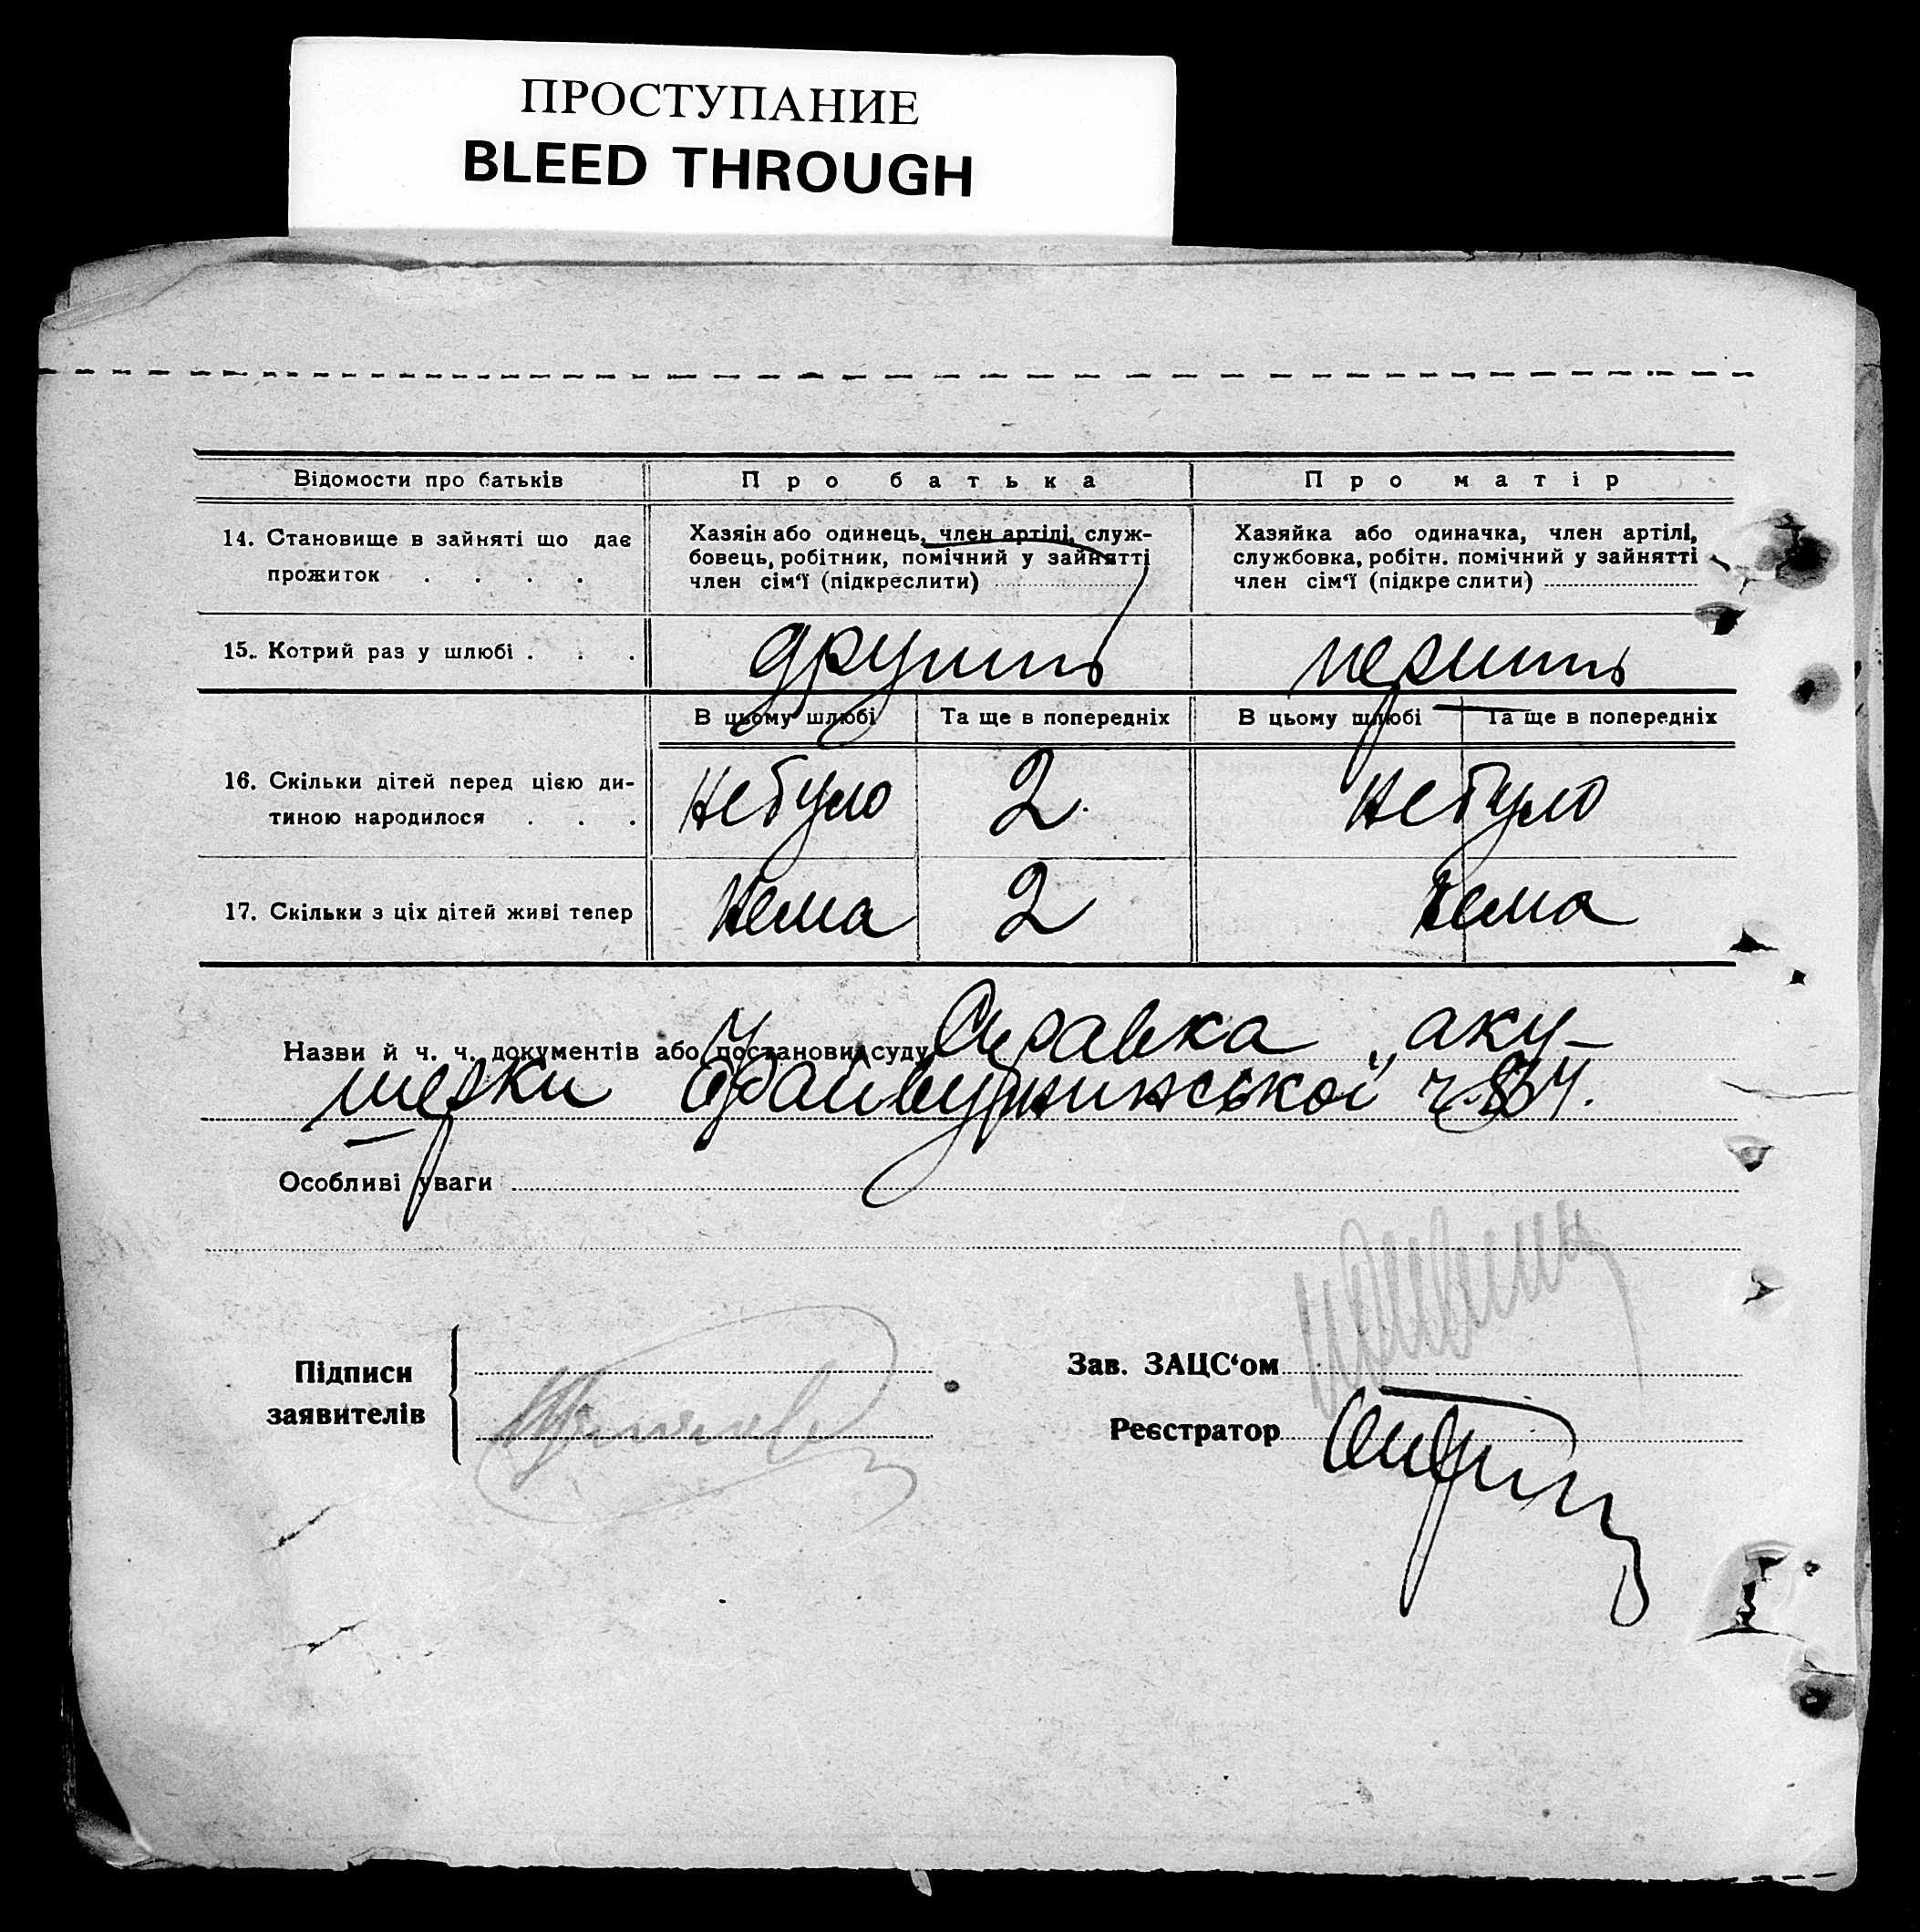 ПРОСТУПАНИЕ
BLEED THROUGH
Відомости про батьків Про батька Про матір
14. Становище в зайняті що дає прожиток . . . .
Хазяін або одинець, член артілі, служ-
бовець, робітник, помічний у зайнятті
член сім'ї (підкреслити)
Хазяйка або одиначка, член артілі,
службовка, робітн. помічний у зайнятті
член сім'ї (підкреслити)
15. Котрий раз у шлюбі . . . другий первий
В цьому шлюбі Та ще в попередніх В цьому шлюбі Та ще в попередніх
16. Скільки дітей перед цією ди-
тиною народилося . . . Небуло 2 Небуло
17. Скільки з ціх дітей живі тепер Нема 2 Нема
Назви й ч. ч. документів або постанови суду Справка аку-
шерки
Особливі уваги
Підписи
заявителів
Зав. ЗАЦС'ом
Реєстратор